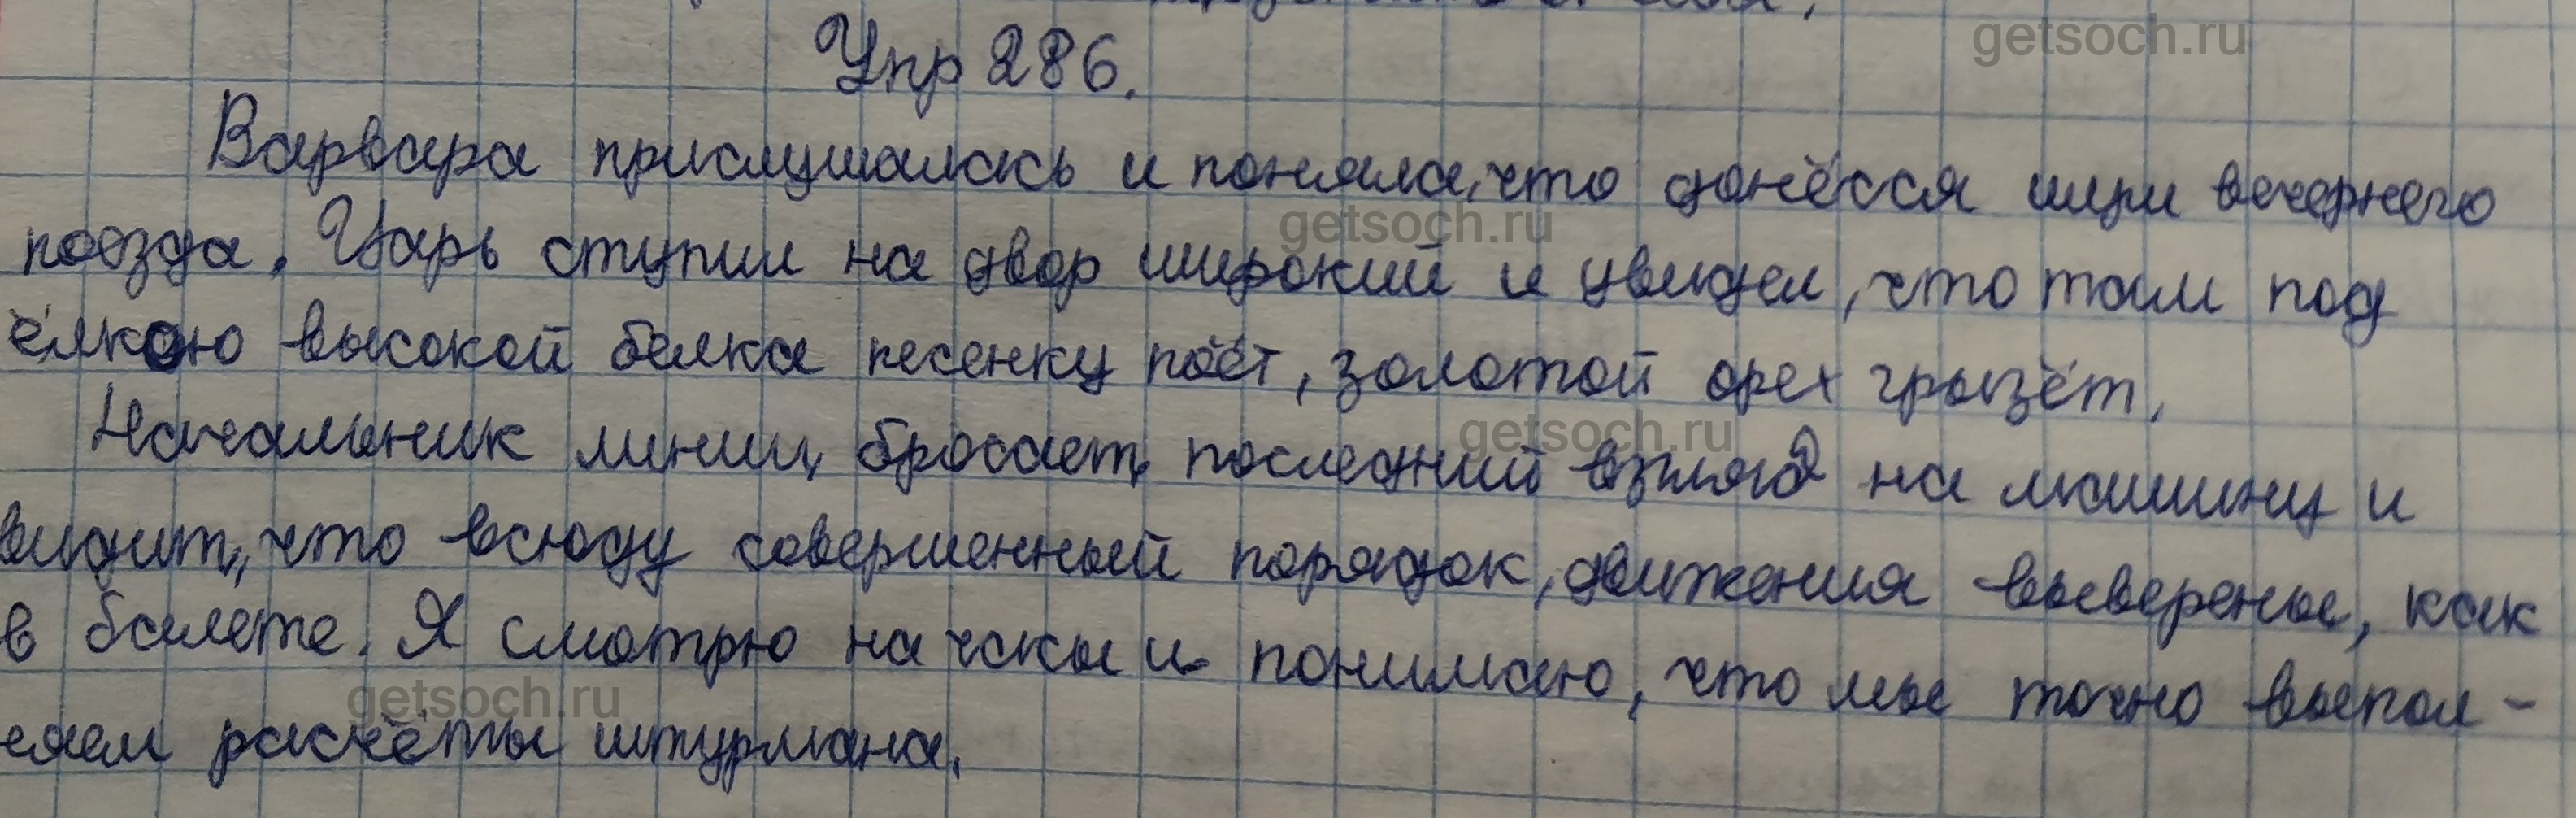 Упр 286.
Варвара прислушалась и поняла, что донёсся шум вечернего
поезда. Царь ступил на двор широкий и увидел, что там под
ёлкою высокой белка песенку поёт, золотой орех грызёт.
Начальник линии бросает последний взгляд на машину и
видит, что всюду совершенный порядок, движения выверены, как
в балете. Я смотрю на часы и понимаю, что мы точно выпол-
няем расчёты штурмана.
getsoch.ru
getsoch.ru
getsoch.ru
getsoch.ru